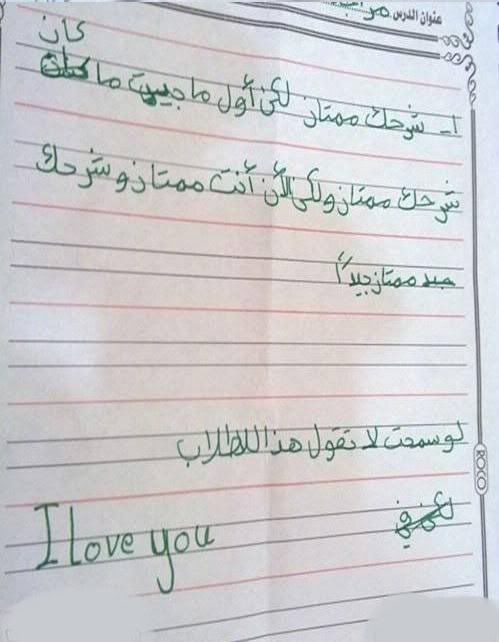 عنوان الدرس
كان
١- شرحك ممتاز لكن أول ما جيت ما
شرحك ممتاز ولكن الأن أنت ممتاز وشرحك
ممتاز جيداً
لو سمحت لا تقول هذا للطلاب
I love you
ROCO